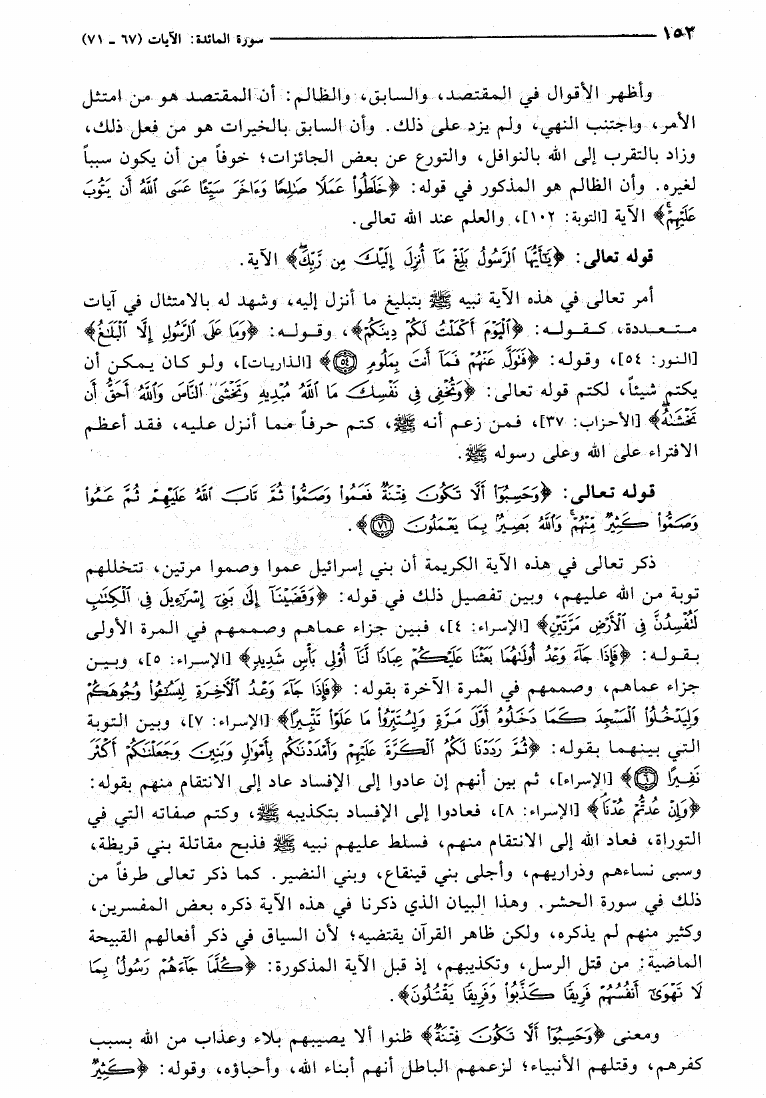 ١٥٣ سورة المائدة: الآيات (٦٧ ـ ٧١)
وأظهر الأقوال في المقتصد، والسابق، والظالم: أن المقتصد هو من امتثل
الأمر، واجتنب النهي، ولم يزد على ذلك. وأن السابق بالخيرات هو من فعل ذلك،
وزاد بالتقرب إلى الله بالنوافل، والتورع عن بعض الجائزات؛ خوفاً من أن يكون سبباً
لغيره. وأن الظالم هو المذكور في قوله: ﴿خَلَطُواْ عَمَلًا صَٰلِحًا وَءَاخَرَ سَيِّئًا عَسَى ٱللَّهُ أَن يَتُوبَ
عَلَيْهِمْۚ﴾ الآية [التوبة: ١٠٢]، والعلم عند الله تعالى.
قوله تعالى: ﴿يَٰٓأَيُّهَا ٱلرَّسُولُ بَلِّغْ مَآ أُنزِلَ إِلَيْكَ مِن رَّبِّكَۖ﴾ الآية.
أمر تعالى في هذه الآية نبيه ﷺ بتبليغ ما أنزل إليه، وشهد له بالامتثال في آيات
متعددة، كقوله: ﴿ٱلْيَوْمَ أَكْمَلْتُ لَكُمْ دِينَكُمْ﴾، وقوله: ﴿وَمَا عَلَى ٱلرَّسُولِ إِلَّا ٱلْبَلَٰغُ﴾
[النور: ٥٤]، وقوله: ﴿فَتَوَلَّ عَنْهُمْ فَمَآ أَنتَ بِمَلُومٍ ۝٥٤﴾ [الذاريات]، ولو كان يمكن أن
يكتم شيئاً، لكتم قوله تعالى: ﴿وَتُخْفِى فِى نَفْسِكَ مَا ٱللَّهُ مُبْدِيهِ وَتَخْشَى ٱلنَّاسَ وَٱللَّهُ أَحَقُّ أَن
تَخْشَىٰهُۖ﴾ [الأحزاب: ٣٧]، فمن زعم أنه ﷺ، كتم حرفاً مما أنزل عليه، فقد أعظم
الافتراء على الله وعلى رسوله ﷺ.
قوله تعالى: ﴿وَحَسِبُوٓاْ أَلَّا تَكُونَ فِتْنَةٌ فَعَمُواْ وَصَمُّواْ ثُمَّ تَابَ ٱللَّهُ عَلَيْهِمْ ثُمَّ عَمُواْ
وَصَمُّواْ كَثِيرٌ مِّنْهُمْۚ وَٱللَّهُ بَصِيرٌۢ بِمَا يَعْمَلُونَ ۝٧١﴾.
ذكر تعالى في هذه الآية الكريمة أن بني إسرائيل عموا وصموا مرتين، تتخللهم
توبة من الله عليهم، وبين تفصيل ذلك في قوله: ﴿وَقَضَيْنَآ إِلَىٰ بَنِىٓ إِسْرَٰٓءِيلَ فِى ٱلْكِتَٰبِ
لَتُفْسِدُنَّ فِى ٱلْأَرْضِ مَرَّتَيْنِ﴾ [الإسراء: ٤]، فبين جزاء عماهم وصممهم في المرة الأولى
بقوله: ﴿فَإِذَا جَآءَ وَعْدُ أُولَىٰهُمَا بَعَثْنَا عَلَيْكُمْ عِبَادًا لَّنَآ أُوْلِى بَأْسٍ شَدِيدٍ﴾ [الإسراء: ٥]، وبين
جزاء عماهم، وصممهم في المرة الآخرة بقوله: ﴿فَإِذَا جَآءَ وَعْدُ ٱلْأَخِرَةِ لِيَسُۥٓـُٔواْ وُجُوهَكُمْ
وَلِيَدْخُلُواْ ٱلْمَسْجِدَ كَمَا دَخَلُوهُ أَوَّلَ مَرَّةٍ وَلِيُتَبِّرُواْ مَا عَلَوْاْ تَتْبِيرًا﴾ [الإسراء: ٧]، وبين التوبة
التي بينهما بقوله: ﴿ثُمَّ رَدَدْنَا لَكُمُ ٱلْكَرَّةَ عَلَيْهِمْ وَأَمْدَدْنَٰكُم بِأَمْوَٰلٍ وَبَنِينَ وَجَعَلْنَٰكُمْ أَكْثَرَ
نَفِيرًا ۝٦﴾ [الإسراء]، ثم بين أنهم إن عادوا إلى الإفساد عاد إلى الانتقام منهم بقوله:
﴿وَإِنْ عُدتُّمْ عُدْنَاۘ﴾ [الإسراء: ٨]، فعادوا إلى الإفساد بتكذيبه ﷺ، وكتم صفاته التي في
التوراة، فعاد الله إلى الانتقام منهم، فسلط عليهم نبيه ﷺ فذبح مقاتلة بني قريظة،
وسبى نساءهم وذراريهم، وأجلى بني قينقاع، وبني النضير. كما ذكر تعالى طرفاً من
ذلك في سورة الحشر. وهذا البيان الذي ذكرنا في هذه الآية ذكره بعض المفسرين،
وكثير منهم لم يذكره، ولكن ظاهر القرآن يقتضيه؛ لأن السياق في ذكر أفعالهم القبيحة
الماضية: من قتل الرسل، وتكذيبهم، إذ قبل الآية المذكورة: ﴿كُلَّمَا جَآءَهُمْ رَسُولٌۢ بِمَا
لَا تَهْوَىٰٓ أَنفُسُهُمْ فَرِيقًا كَذَّبُواْ وَفَرِيقًا يَقْتُلُونَ﴾.
ومعنى ﴿وَحَسِبُوٓاْ أَلَّا تَكُونَ فِتْنَةٌ﴾ ظنوا ألا يصيبهم بلاء وعذاب من الله بسبب
كفرهم، وقتلهم الأنبياء؛ لزعمهم الباطل أنهم أبناء الله، وأحباؤه، وقوله: ﴿كَثِيرٌ